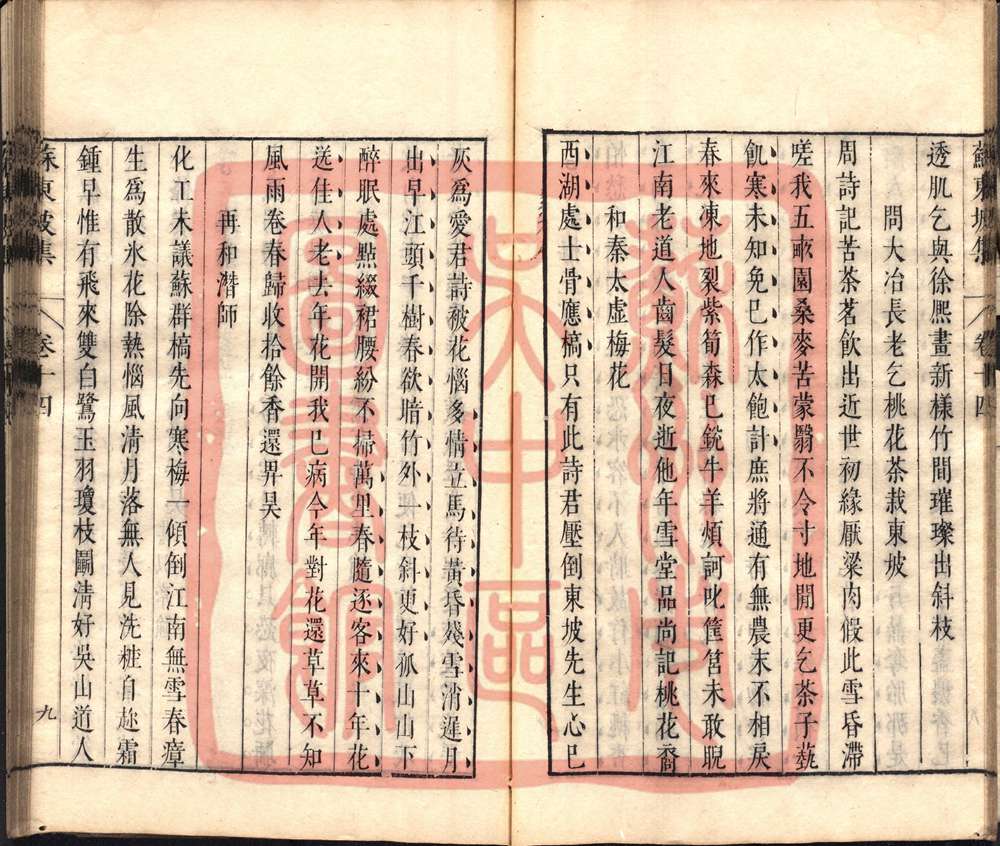 蘇東坡集 卷十四
透肌乞與徐熙畫新樣竹間璀璨出斜枝
問大冶長老乞桃花茶栽東坡
周詩記苦茶茗飲出近世初緣厭粱肉假此雪昏滯
嗟我五畝園桑麥苦蒙翳不令寸地閒更乞茶子蓺
飢寒未知免已作太飽計庶將通有無農末不相戾
春來凍地裂紫筍森已銳牛羊煩訶叱筐筥未敢睨
江南老道人齒髮日夜逝他年雪堂品尚記桃花裔
和秦太虛梅花
西湖處士骨應槁只有此詩君壓倒東坡先生心已
灰爲愛君詩被花惱多情立馬待黃昏殘雪消遲月
出早江頭千樹春欲暗竹外一枝斜更好孤山山下
醉眠處點綴裙腰紛不掃萬里春隨逐客來十年花
送佳人老去年花開我已病今年對花還草草不知
風雨卷春歸收拾餘香還畀昊
再和潛師
化工未議蘇群槁先向寒梅一傾倒江南無雪春瘴
生爲散氷花除熱惱風清月落無人見洗粧自趂霜
鍾早惟有飛來雙白鷺玉羽瓊枝鬭清好吳山道人
蘇東坡集 卷十四 九
圖書館